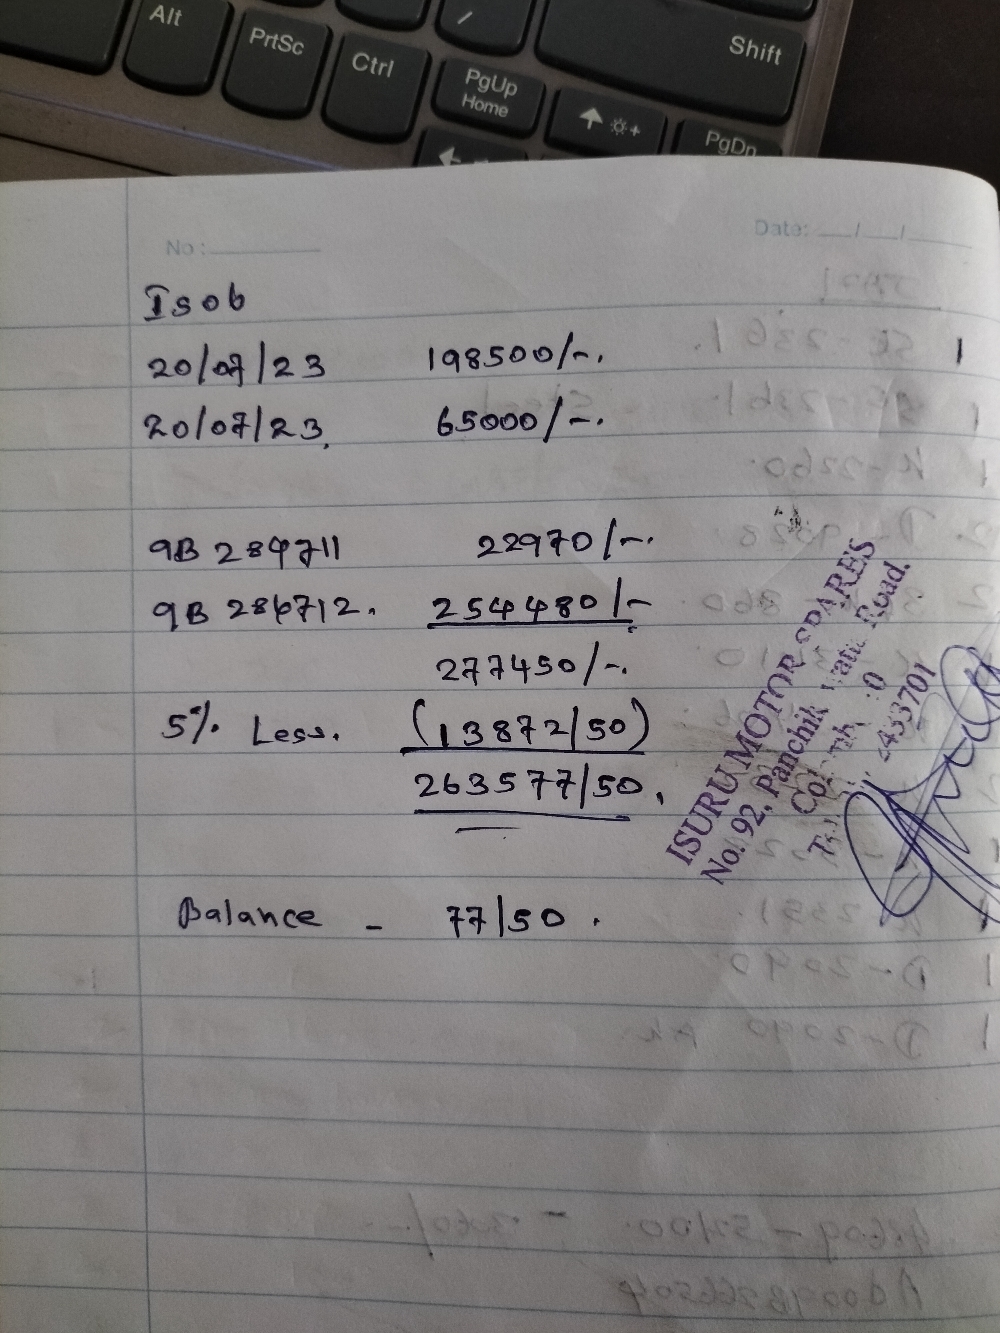 Alt
PrtSc
Ctrl
/
Shift
PgUp
Home
PgDn
No:
Date: / /
Isob
20/07/23 198500/-.
20/07/23, 65000/-.
9B 284711 22970/-.
9B 284712. 254480/-
277450/-.
5% Less. (13872/50)
263577/50.
Balance - 77/50.
ISURU MOTOR SPARES
No. 92, Panchik Road,
2433701